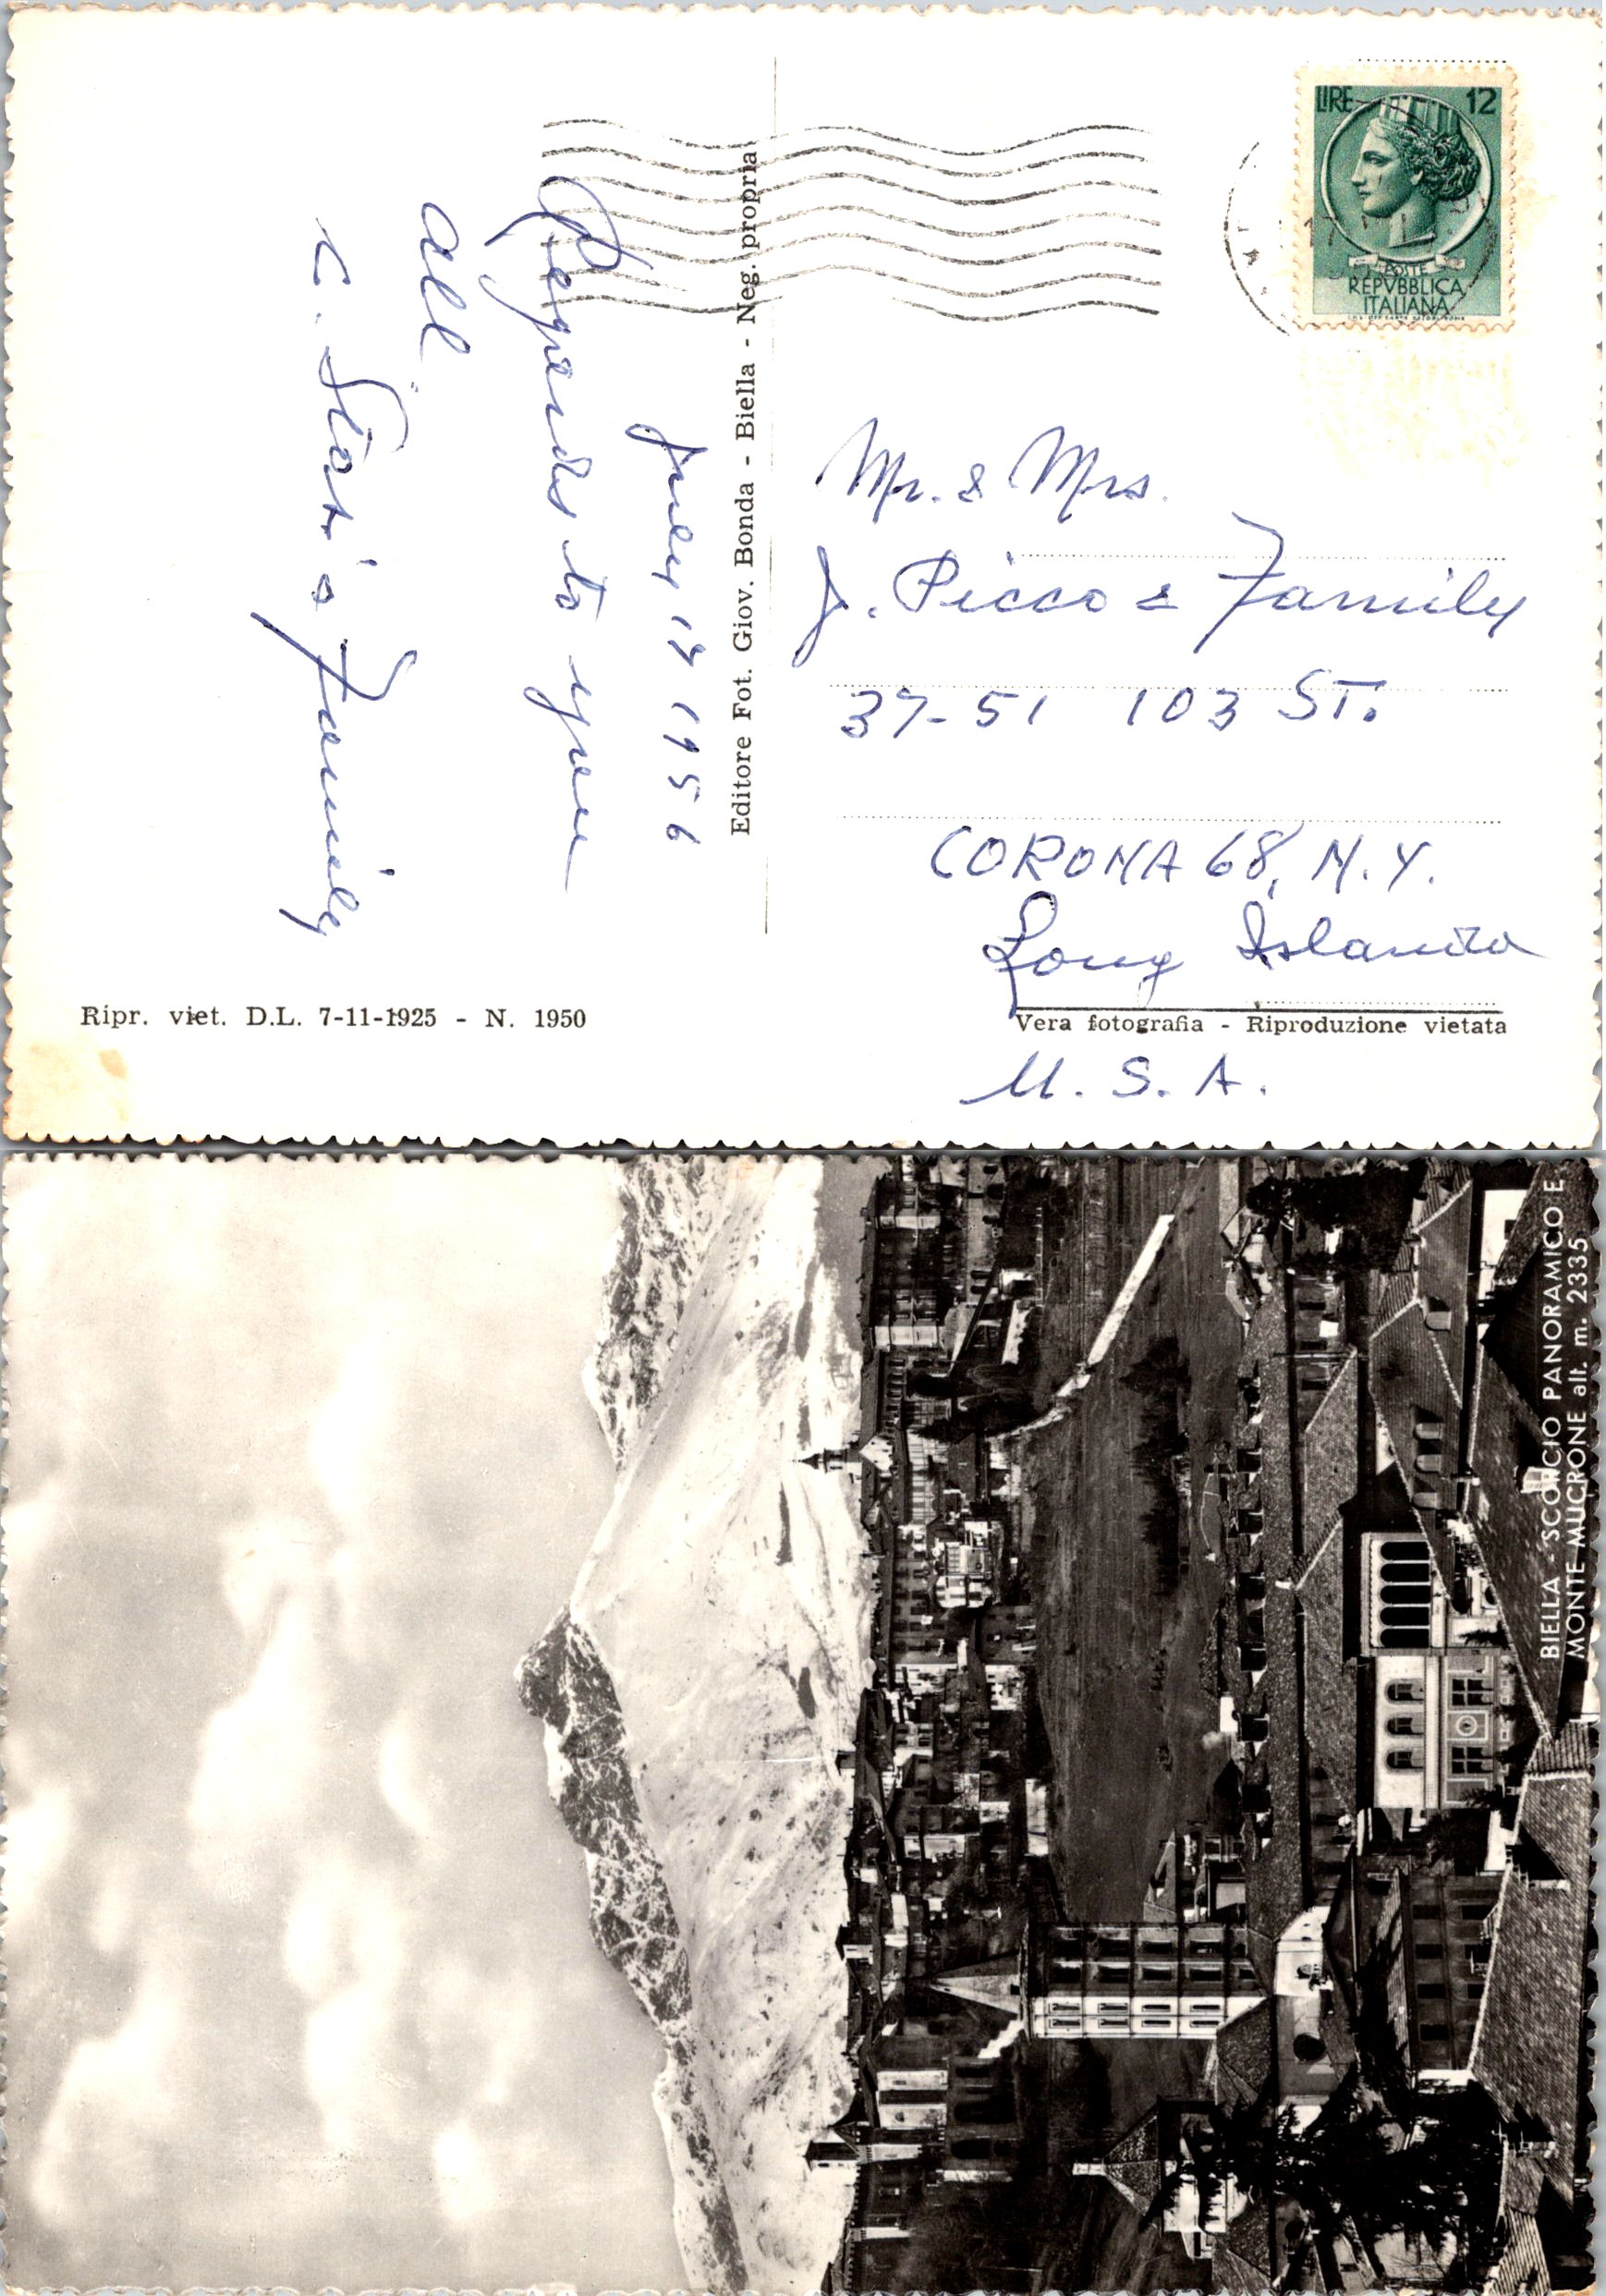 LIRE 12
POSTE
REPVBBLICA
ITALIANA
July 17 1956
Regards to you
all
C. & Family
Editore Fot. Giov. Bonda - Biella - Neg. propria
Mr. & Mrs.
J. Picco & Family
37-51 103 ST.
CORONA 68, N.Y.
Long Island
U. S. A.
Ripr. viet. D.L. 7-11-1925 - N. 1950
Vera fotografia - Riproduzione vietata
BIELLA - SCORCIO PANORAMICO E
MONTE MUCRONE alt. m. 2335